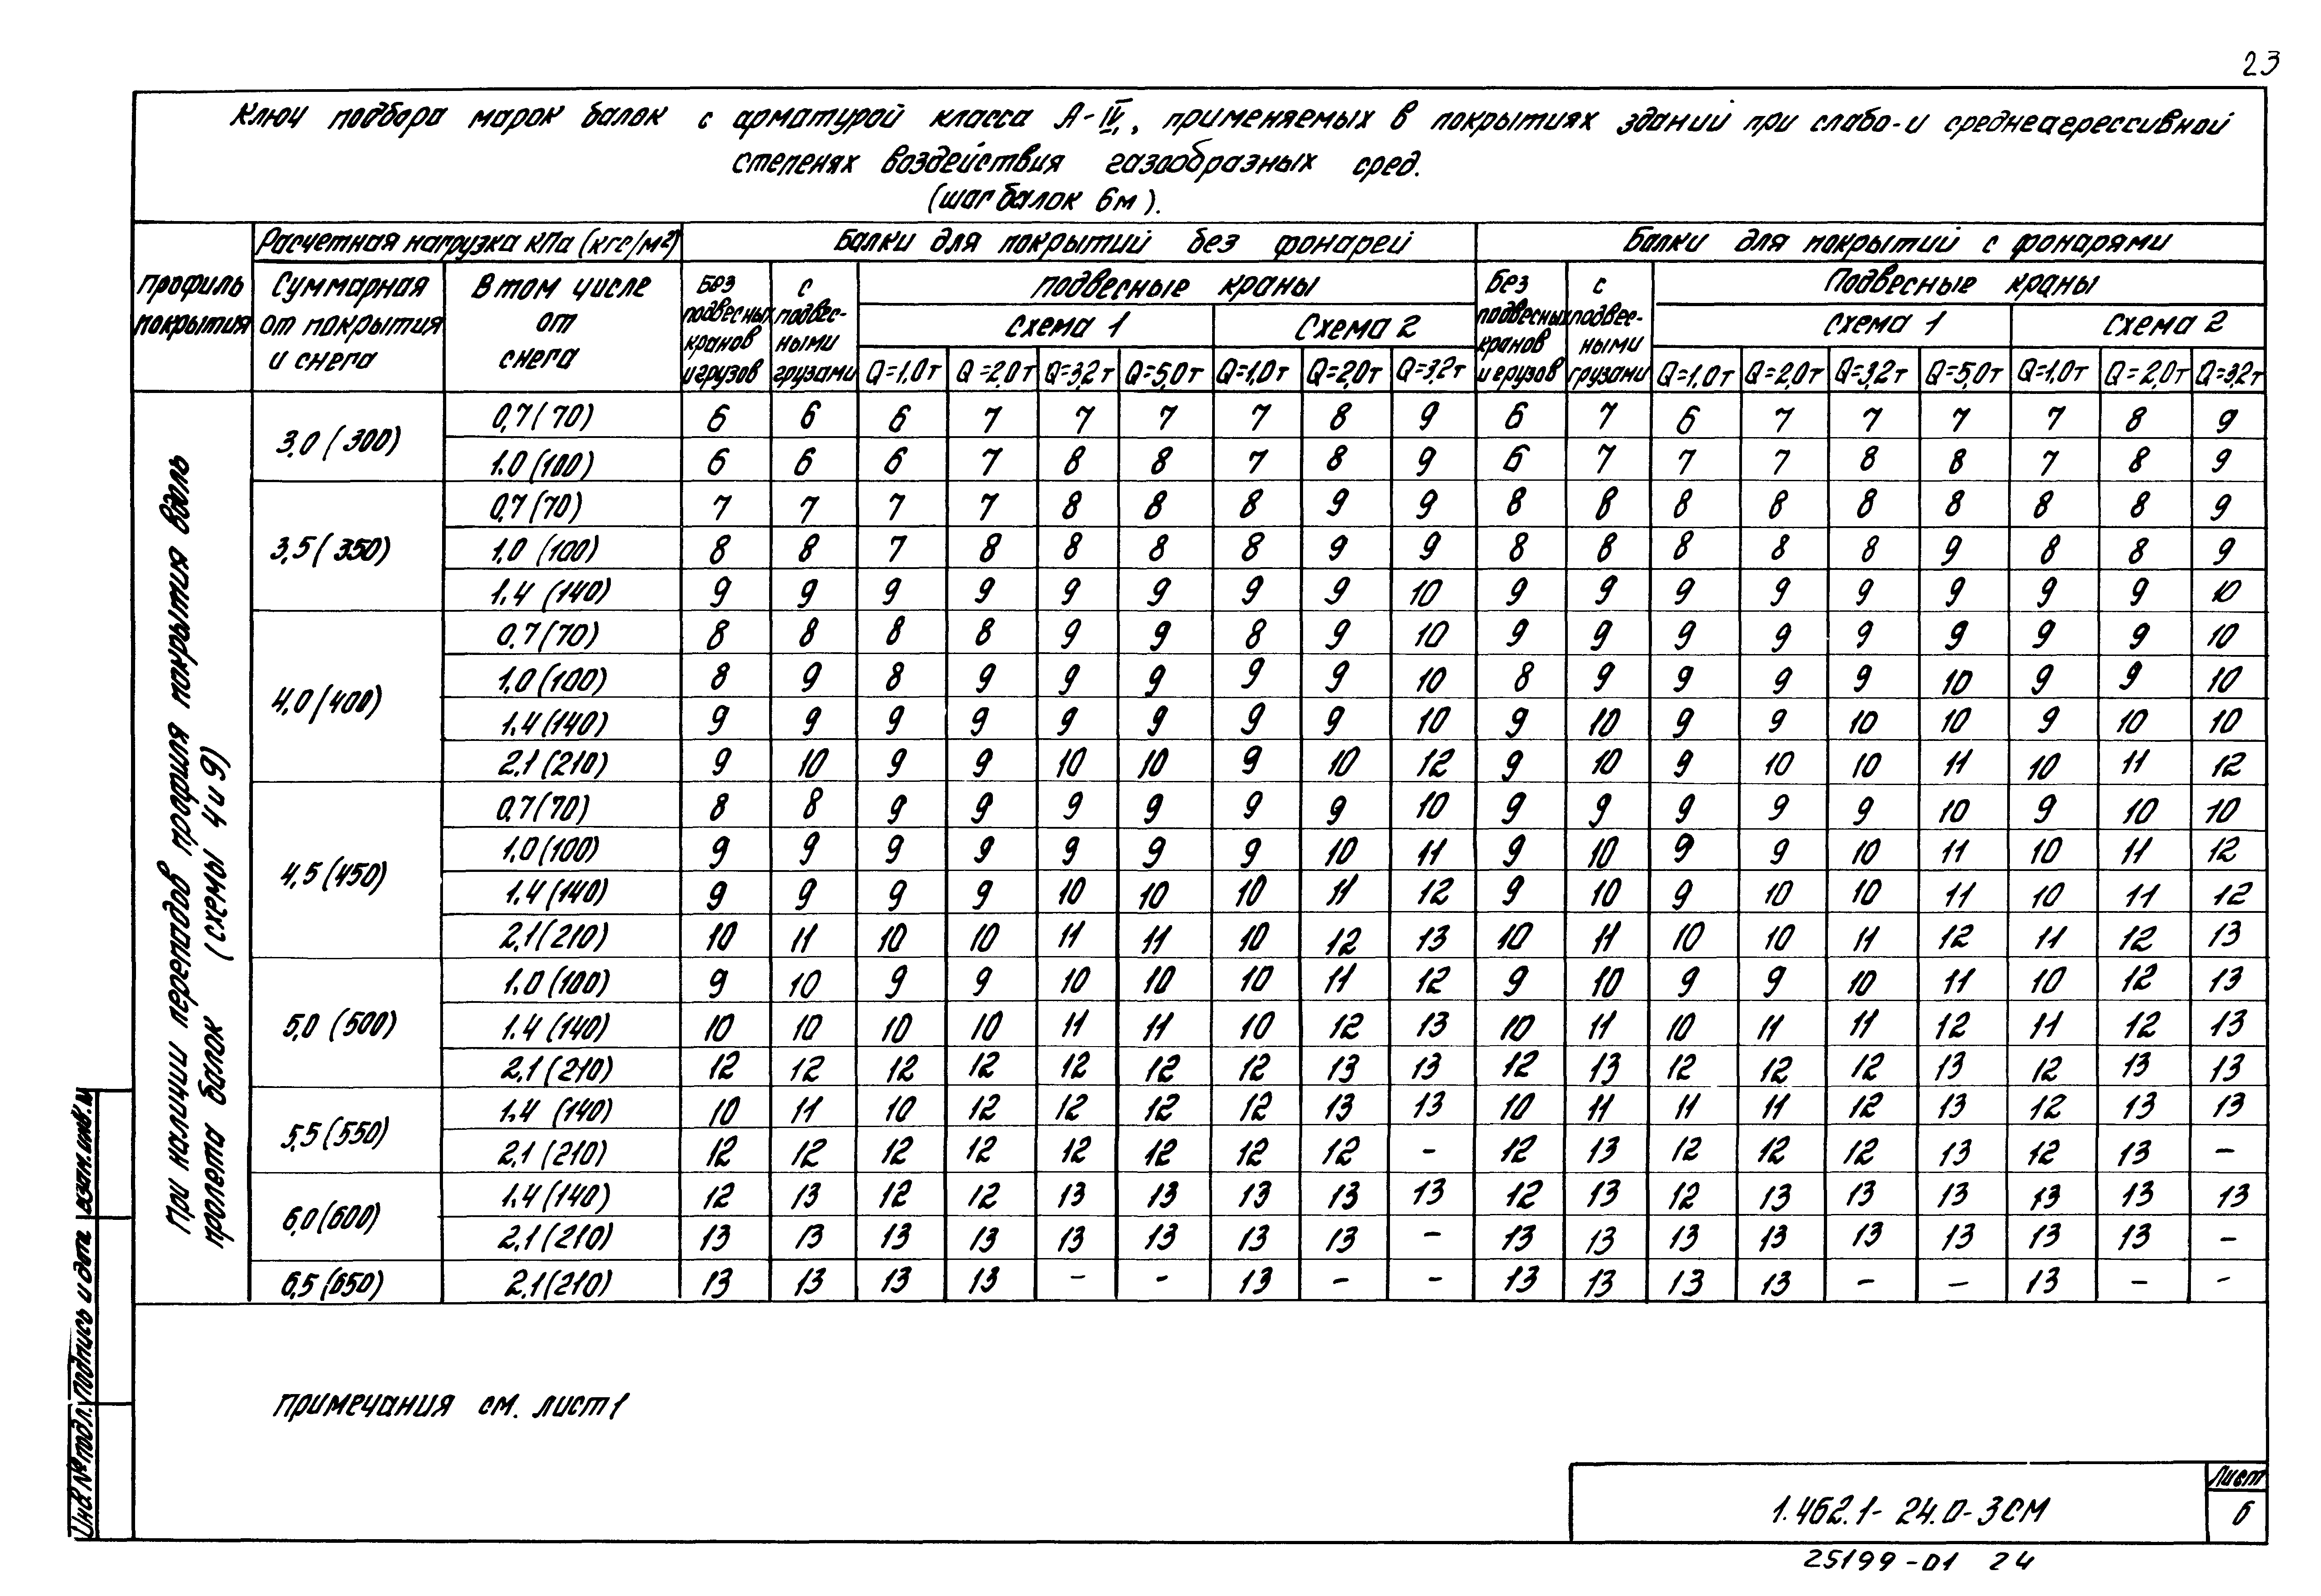 23
Ключ подбора марок балок с арматурой класса А-IV, применяемых в покрытиях зданий при слабо- и среднеагрессивной
степенях воздействия газообразных сред.
(шаг балок 6м).
Профиль покрытия
Расчетная нагрузка кПа (кгс/м²)
Балки для покрытий без фонарей
Балки для покрытий с фонарями
Суммарная от покрытия и снега
В том числе от снега
Без подвесных кранов и грузов
с подвес-ными грузами
подвесные краны
Без подвесных кранов и грузов
с подвес-ными грузами
Подвесные краны
Схема 1
Схема 2
Схема 1
Схема 2
Q=1,0т Q=2,0т Q=3,2т Q=5,0т Q=1,0т Q=2,0т Q=3,2т Q=1,0т Q=2,0т Q=3,2т Q=5,0т Q=1,0т Q=2,0т Q=3,2т
При наличии перепадов профиля покрытия вдоль
пролета балок (схемы 4 и 9)
3,0 (300)
0,7(70) 6 6 6 7 7 7 7 8 9 6 7 6 7 7 7 7 8 9
1.0 (100) 6 6 6 7 8 8 7 8 9 6 7 7 7 8 8 7 8 9
3,5(350)
0,7(70) 7 7 7 7 8 8 8 9 9 8 8 8 8 8 8 8 8 9
1,0 (100) 8 8 7 8 8 8 8 9 9 8 8 8 8 8 9 8 8 9
1.4 (140) 9 9 9 9 9 9 9 9 10 9 9 9 9 9 9 9 9 10
4,0(400)
0,7(70) 8 8 8 8 9 9 8 9 10 9 9 9 9 9 9 9 9 10
1,0(100) 8 9 8 9 9 9 9 9 10 8 9 9 9 9 10 9 9 10
1.4(140) 9 9 9 9 9 9 9 9 10 9 10 9 9 10 10 9 10 10
2.1(210) 9 10 9 9 10 10 9 10 12 9 10 9 10 10 11 10 11 12
4,5(450)
0,7(70) 8 8 9 9 9 9 9 9 10 9 9 9 9 9 10 9 10 10
1,0(100) 9 9 9 9 9 9 9 10 11 9 10 9 9 10 11 10 11 12
1.4(140) 9 9 9 9 10 10 10 11 12 9 10 9 10 10 11 10 11 12
2,1(210) 10 11 10 10 11 11 10 12 13 10 11 10 10 11 12 11 12 13
5,0 (500)
1.0(100) 9 10 9 9 10 10 10 11 12 9 10 9 9 10 11 10 12 13
1.4 (140) 10 10 10 10 11 11 10 12 13 10 11 10 11 11 12 11 12 13
2,1(210) 12 12 12 12 12 12 12 13 13 12 13 12 12 12 13 12 13 13
5,5(550)
1.4 (140) 10 11 10 12 12 12 12 13 13 10 11 11 11 12 13 12 13 13
2,1 (210) 12 12 12 12 12 12 12 12 - 12 13 12 12 12 13 12 13 -
6,0(600)
1.4(140) 12 13 12 12 13 13 13 13 13 12 13 12 13 13 13 13 13 13
2,1(210) 13 13 13 13 13 13 13 13 - 13 13 13 13 13 13 13 13 -
6,5(650) 2,1(210) 13 13 13 13 - - 13 - - 13 13 13 13 - - 13 - -
Примечания см. лист 1
Инв № подл. Подпись и дата Взам.инв.№
1.462.1-24.0-3СМ
Лист
6
25199-01 24